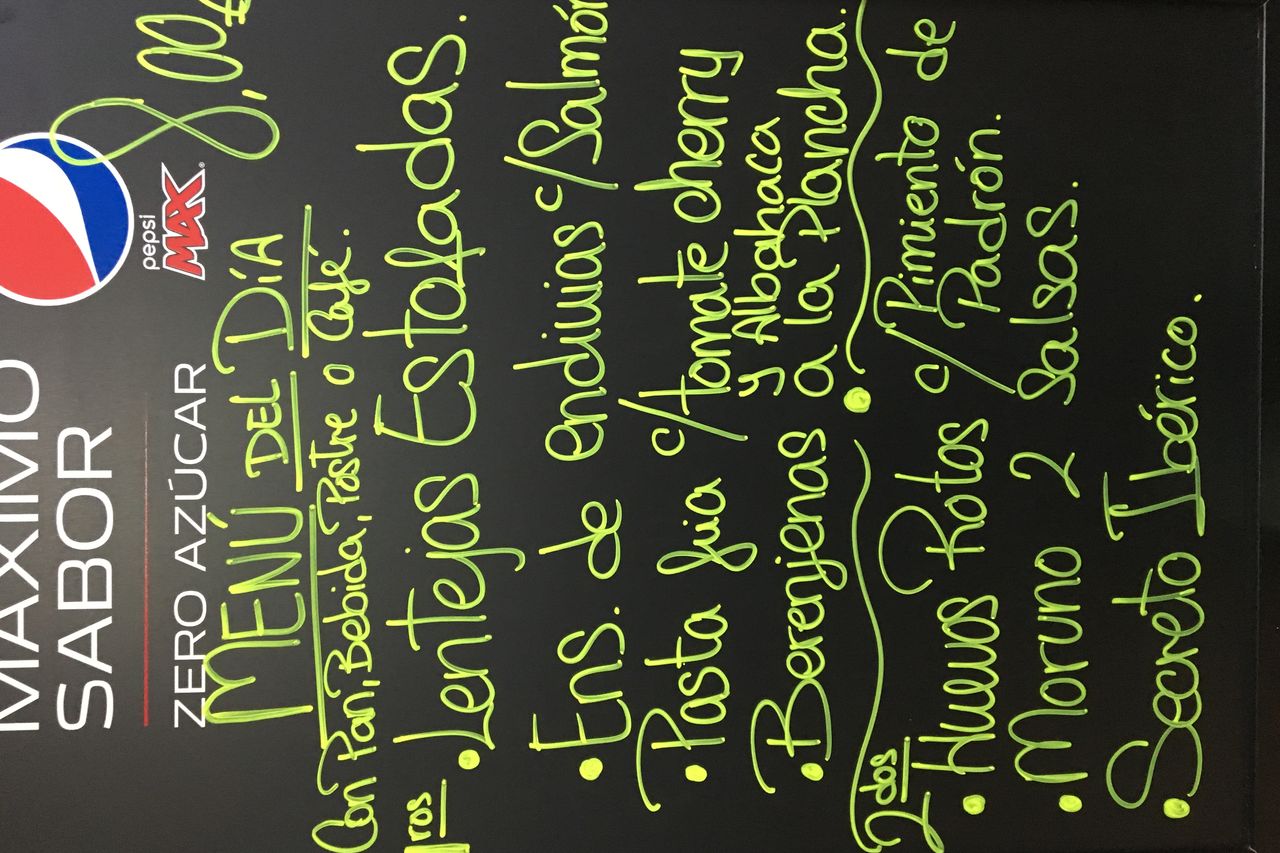 MÁXIMO
SABOR
ZERO AZÚCAR
pepsi
MAX
8,00€
MENÚ DEL DÍA
Con Pan, Bebida, Postre o Café.
1ros
• Lentejas Estofadas.
• Ens. de endivias c/ Salmón
• Pasta fria c/ tomate cherry
y Albahaca
• Berenjenas a la Plancha.
2dos
• Huevos Rotos c/ Pimiento de
Padrón.
• Moruno 2 Salsas.
• Secreto Ibérico.